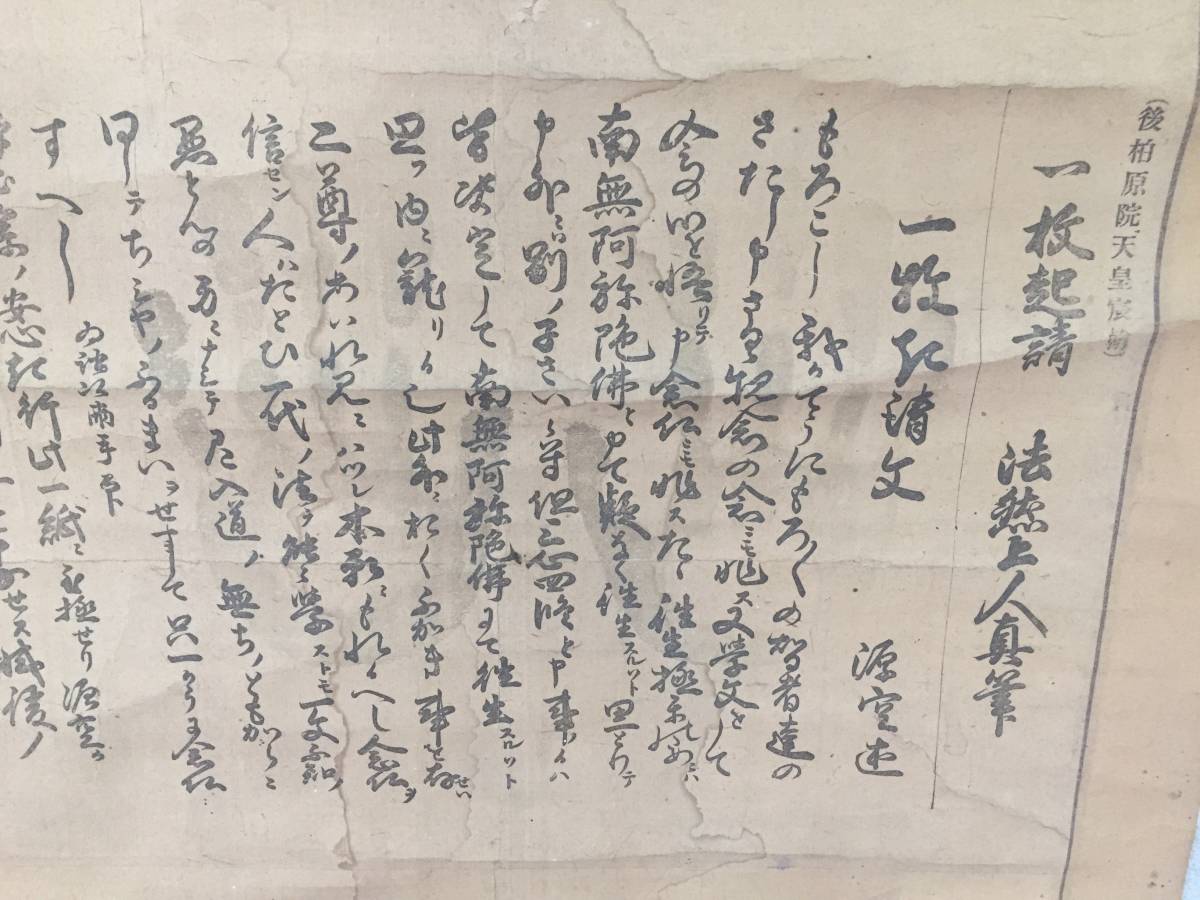 (後柏原院天皇宸翰)
一枚起請　法然上人真筆
一枚起請文
源空述
もろこし我かてうにもろ〱の智者達の
さたし申さるゝ観念の念ニモ非ス又学文をして
念の心を悟リテ申念仏ニモ非スたゝ往生極楽のためニハ
南無阿弥陀佛と申て疑なく往生スルソト思とりテ
申外ニハ別ノ子さい候ハす但三心四修と申事ノ候ハ
皆決定して南無阿弥陀佛にて往生スルソト
思フ内ニ籠リ候也此外ニおくふかき事を存せハ
二尊ノあハれみニハツレ本願ニもれ候へし念仏ヲ
信セン人ハたとひ一代ノ法ヲ能々学ストモ一文不知ノ
愚とんの身ニナシテ尼入道ノ無ちノともからニ
同シテちしやノふるまいヲせすして只一かうに念仏
すへし
為証以両手印
安心起行此一紙ニ至極せり源空か